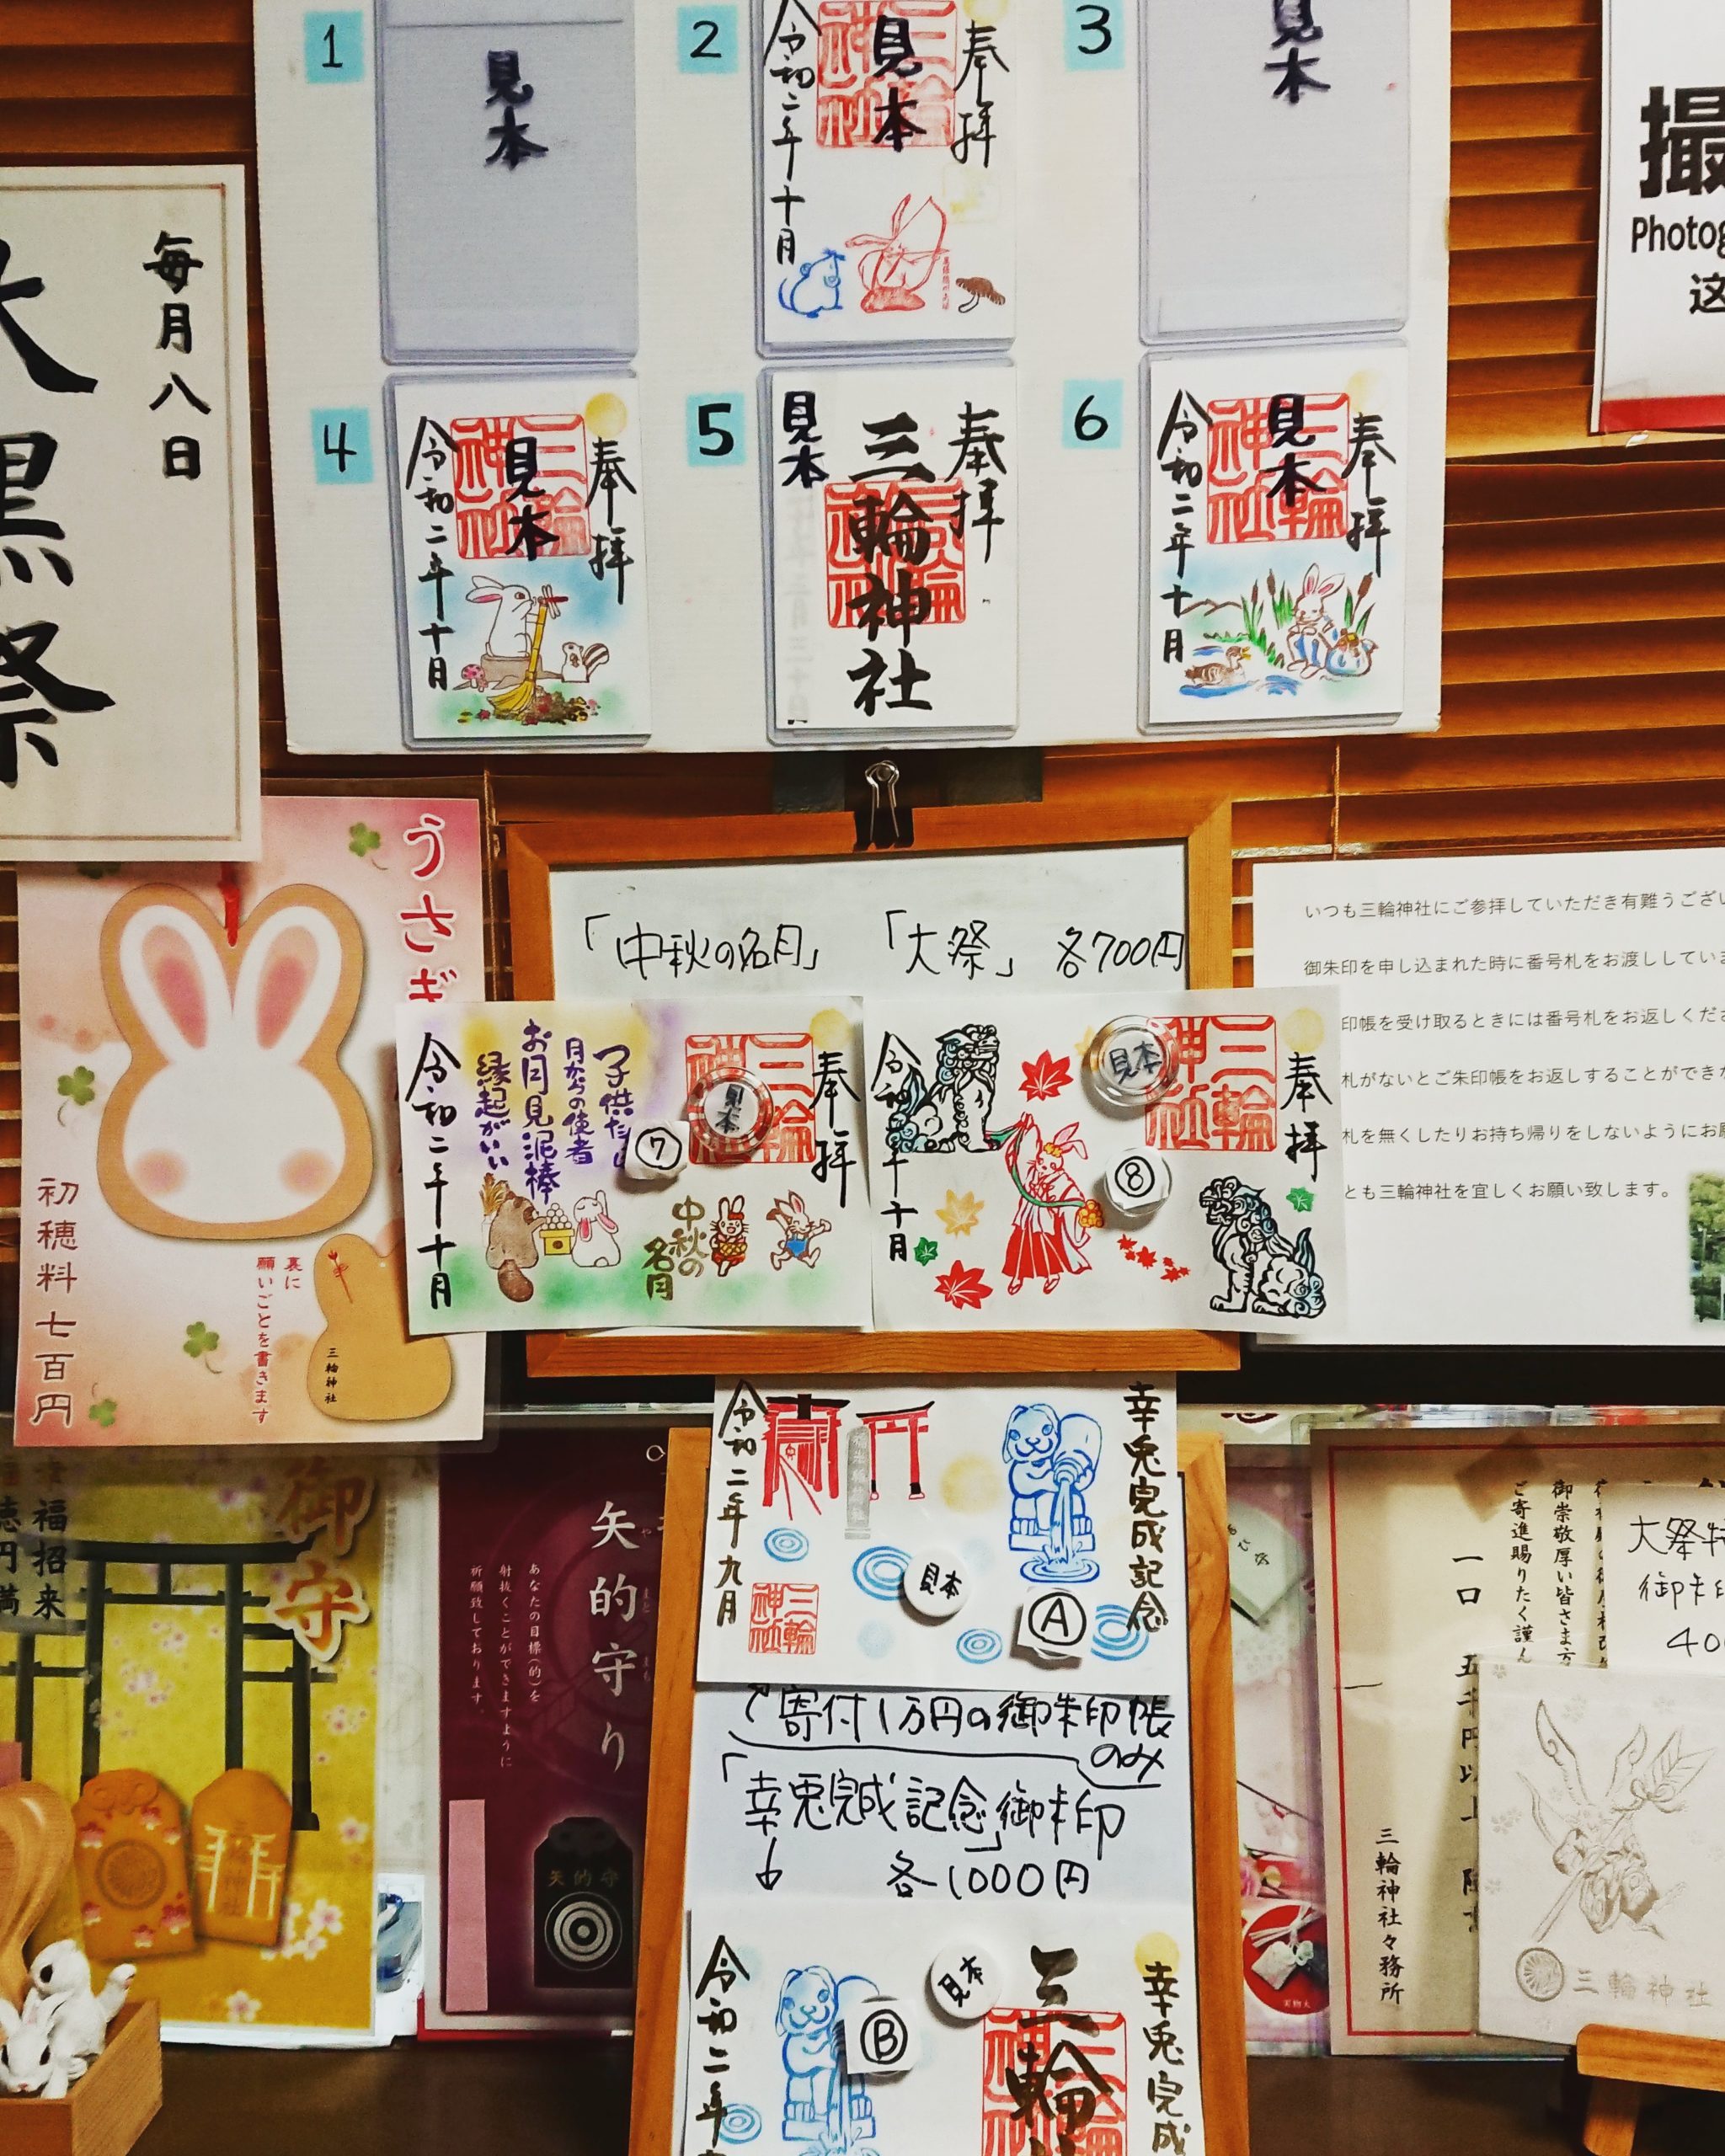 1
見本
2
奉拝
三輪神社
見本
令和二年十月
3
見本
撮
Photog
这
毎月八日
大黒祭
4
奉拝
三輪神社
見本
令和二年十月
5
奉拝
三輪神社
見本
6
奉拝
三輪神社
見本
令和二年十月
うさぎ
初穂料七百円
裏に
願いごとを書きます
三輪神社
「中秋の名月」 「大祭」 各700円
奉拝
三輪神社
見本
⑦
月からの使者
お月見泥棒
縁起がいい
中秋の
名月
令和二年十月
奉拝
三輪神社
見本
⑧
令和二年十月
いつも三輪神社にご参拝していただき有難うござい
御朱印を申し込まれた時に番号札をお渡ししていま
印帳を受け取るときには番号札をお返しくださ
札がないとご朱印帳をお返しすることができな
札を無くしたりお持ち帰りをしないようにお願
とも三輪神社を宜しくお願い致します。
幸兎完成記念
Ⓐ
見本
三輪神社
令和二年九月
寄付1万円の御朱印帳
のみ
「幸兎完成記念」御朱印
各1000円
幸兎完成
三輪
見本
Ⓑ
令和二年
御守
福招来
矢的守り
あなたの目標(的)を
射抜くことができますように
祈願致しております。
矢的守
御崇敬厚い皆さま方
ご寄進賜りたく謹ん
一口 五千円以上
三輪神社々務所
大祭特
御朱印
400
三輪神社